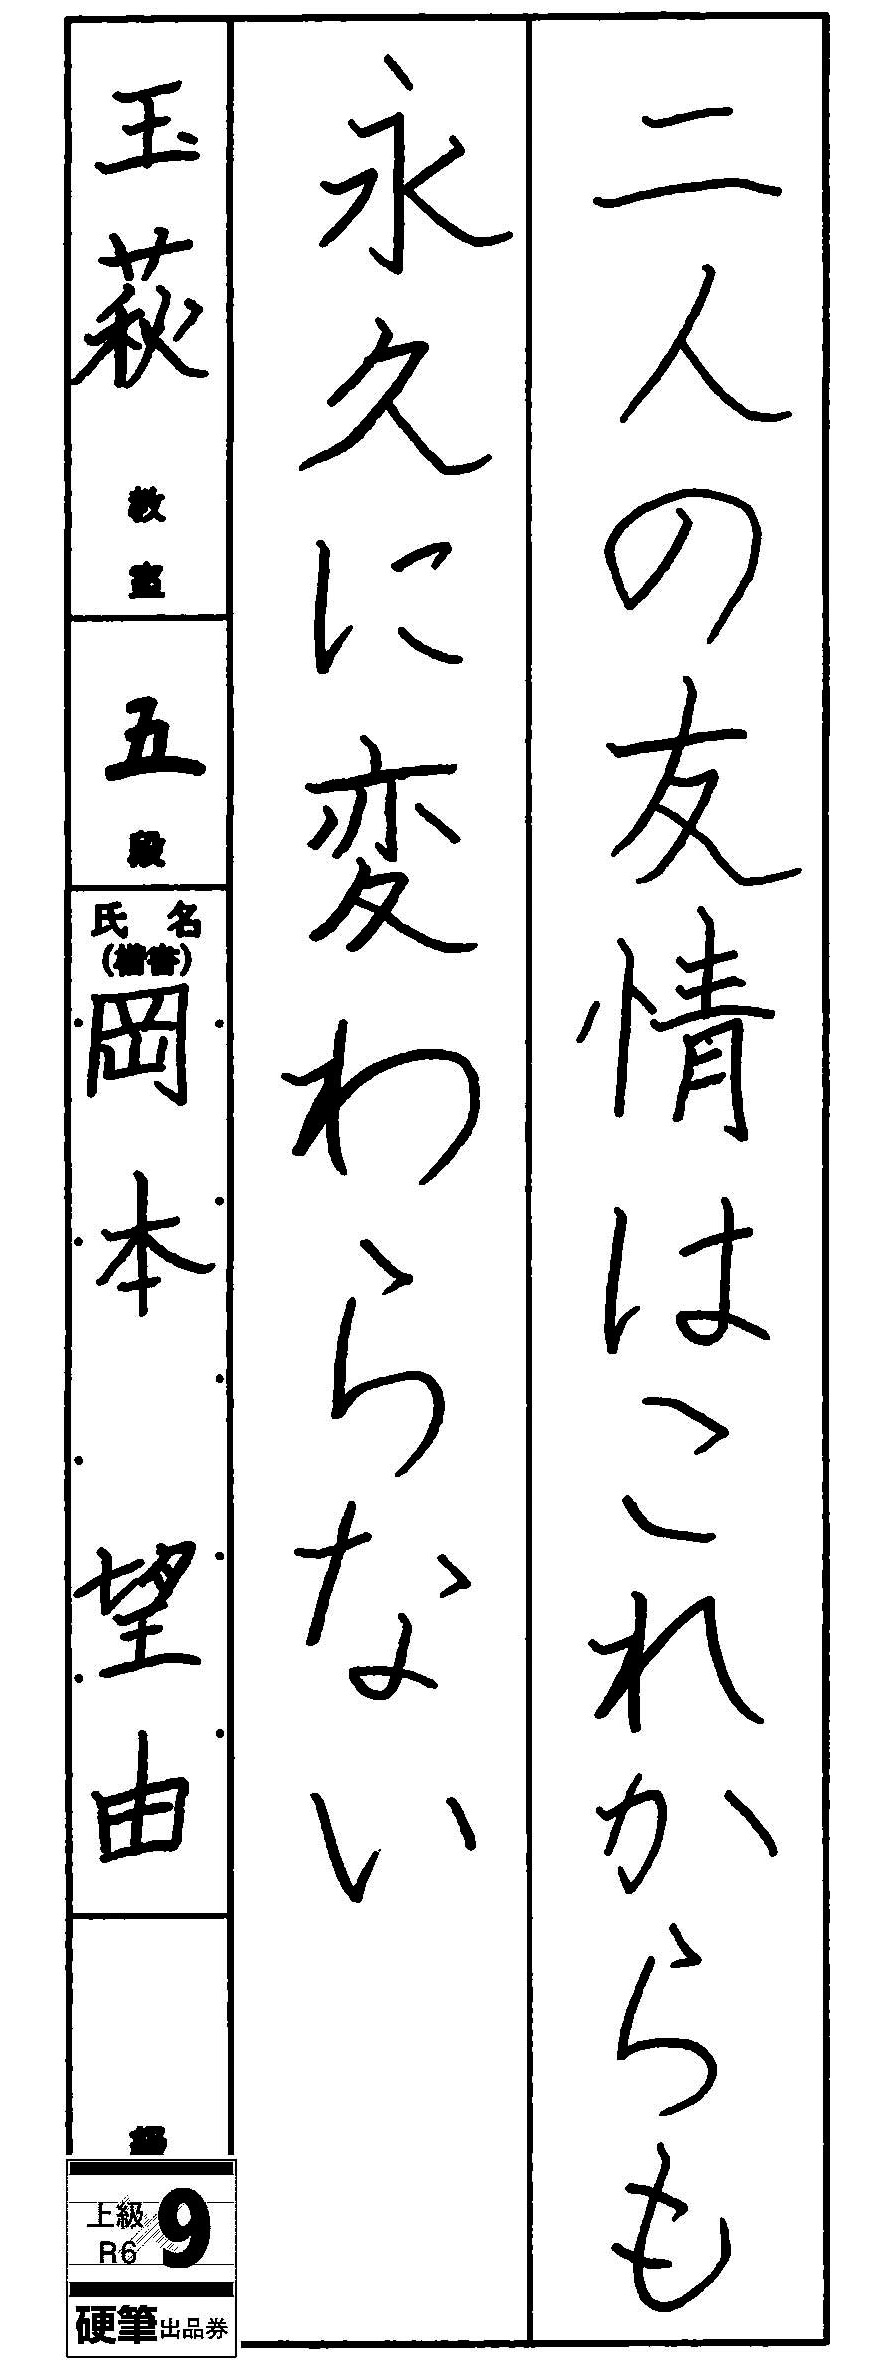 二人の友情はこれからも
永久に変わらない
玉萩教室
五段
氏名
(楷書)
岡本 望由
上級
R6
9
硬筆出品券